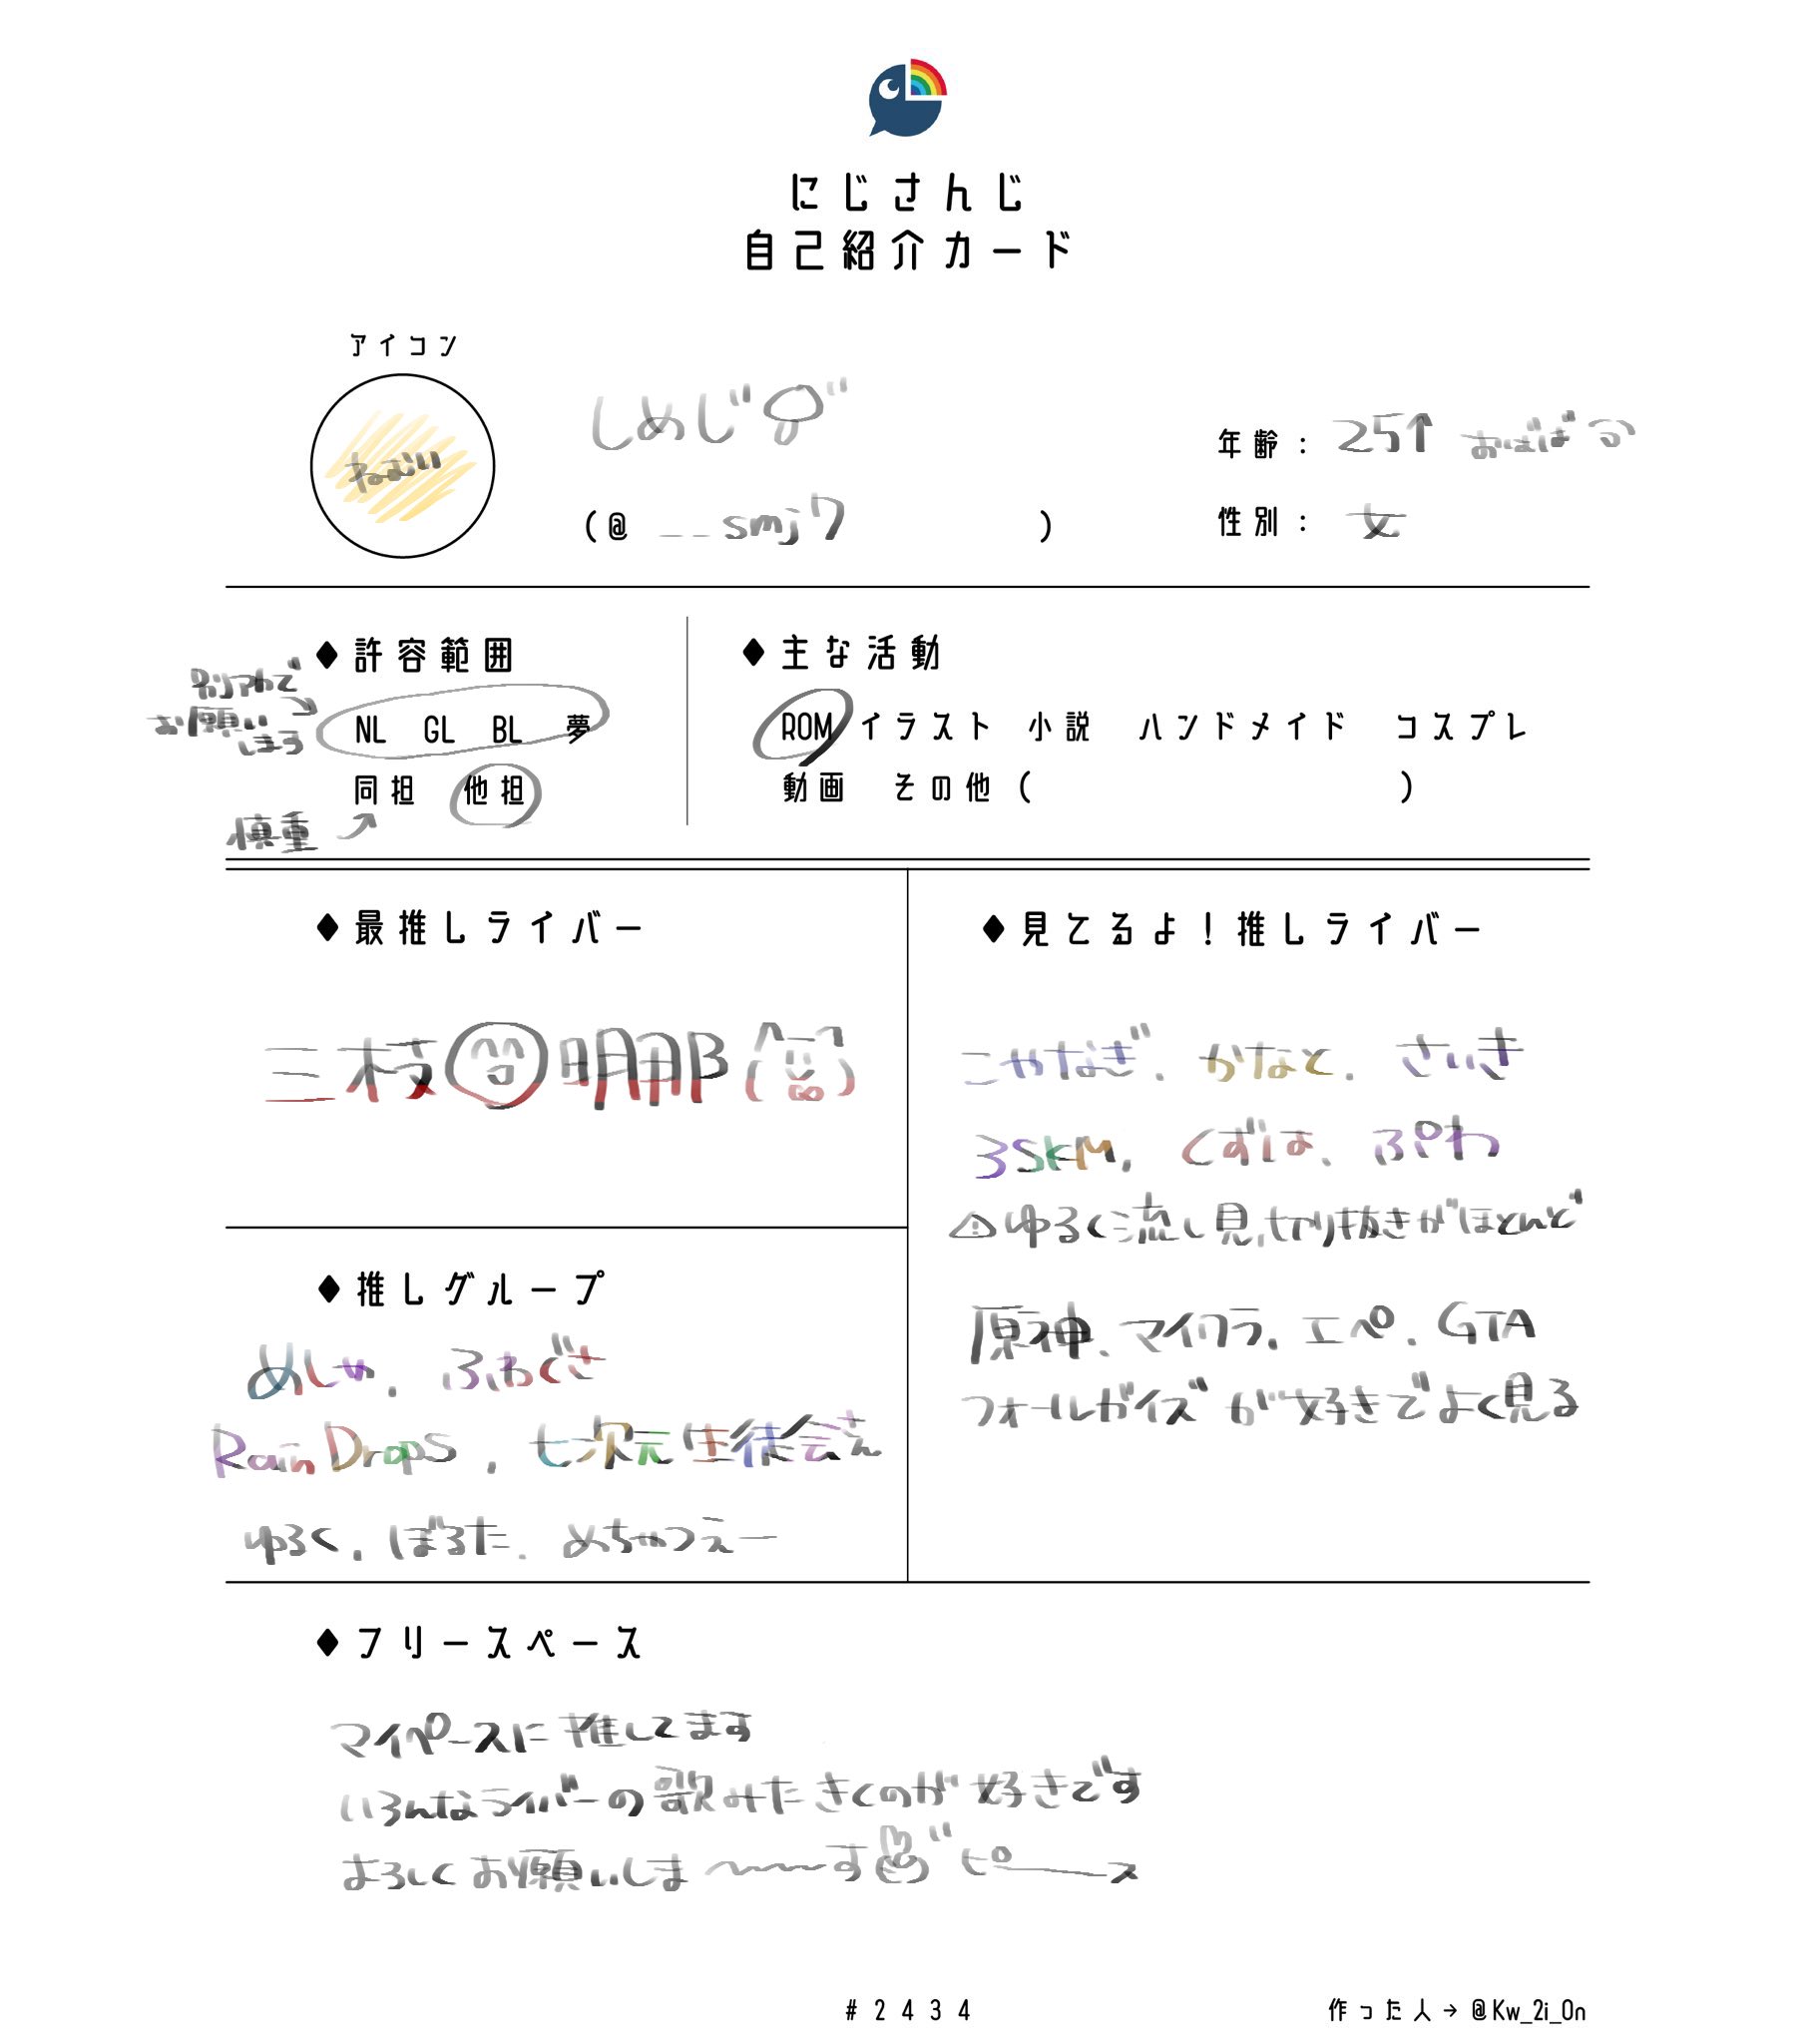 にじさんじ
自己紹介カード
アイコン
ねむい
しめじ
(@ __smj7 )
年齢： 25↑ おばば
性別： 女
◆許容範囲
別アカで
お願いしまう
NL GL BL 夢
同担 他担
慎重
◆主な活動
ROM イラスト 小説 ハンドメイド コスプレ
動画 その他( )
◆最推しライバー
三枝明那
◆見てるよ！推しライバー
こやなぎ、かなと、さいき
3SKM、くずは、ぷわ
⚠ゆるく流し見、切り抜きがほとんど
原神、マイクラ、エペ、GTA
フォールガイズが好きでよく見る
◆推しグループ
めしゃ、ふわぐさ
Rain Drops、七次元生徒会さん
ゆるく、ばろた、めちゃつえー
◆フリースペース
マイペースに推してます
いろんなライバーの歌みたきくのが好きです
よろしくお願いしま〜〜〜すピース
#2434
作った人→@Kw_2i_0n